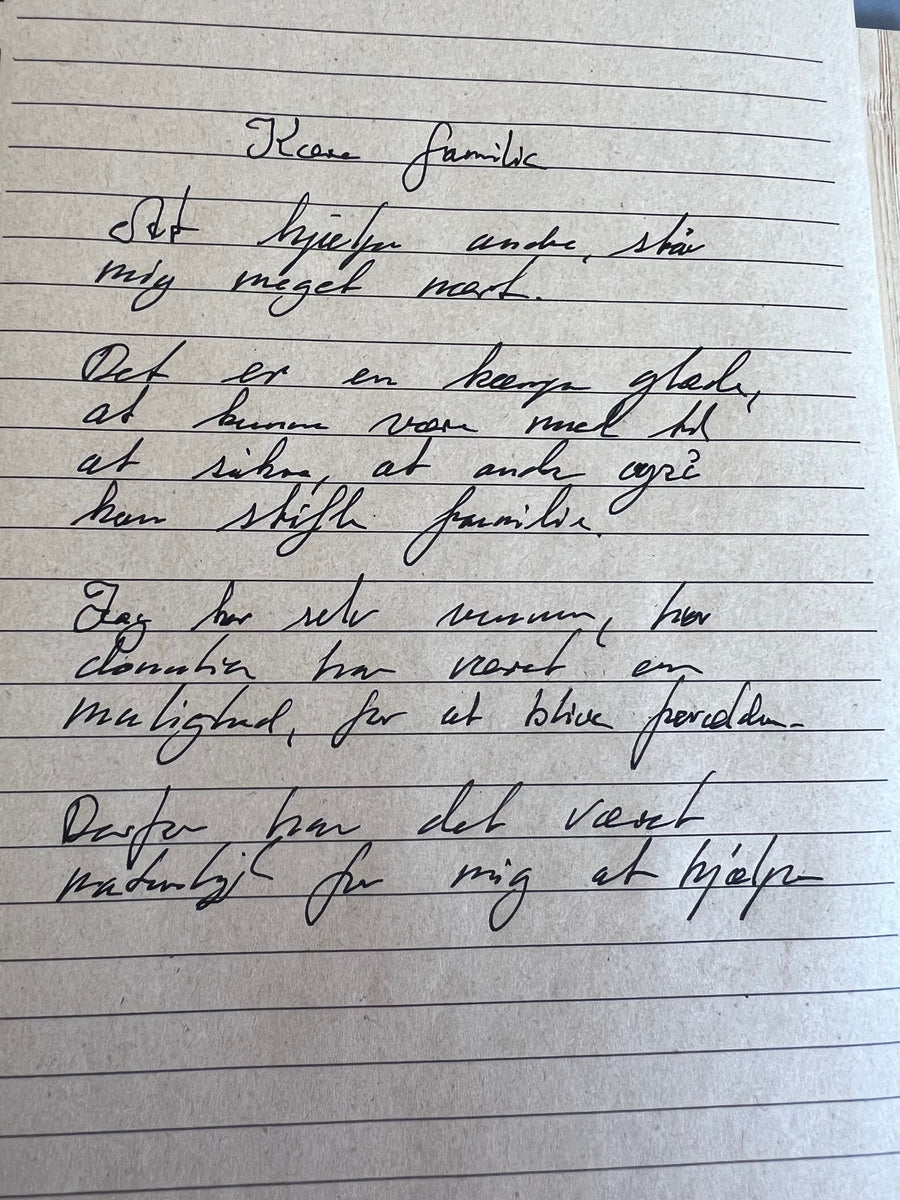 Kære familie
At hjælpe andre, står
mig meget nært.
Det er en kæmpe glæde,
at kunne være med til
at sikre, at andre også
kan stifte familie.
Jeg har selv venner, hvor
donation har været en
mulighed, for at blive forældre.
Derfor har det været
naturligt for mig at hjælpe